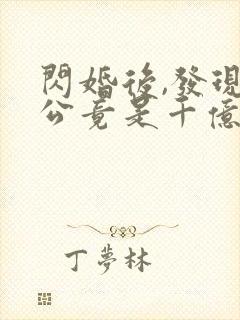 閃婚後,發現
公竟是千億
丁夢林